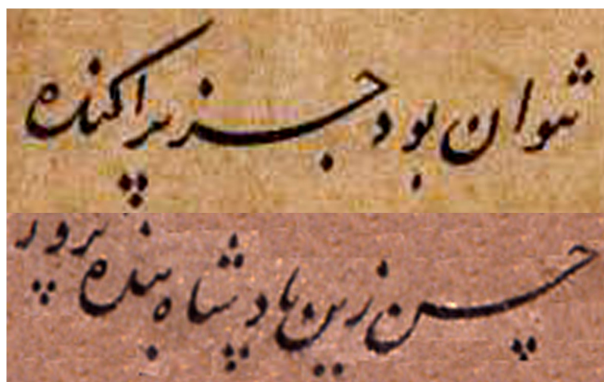 نتوان بود جز پراکنده
چنین زین پادشاه بنده پرور